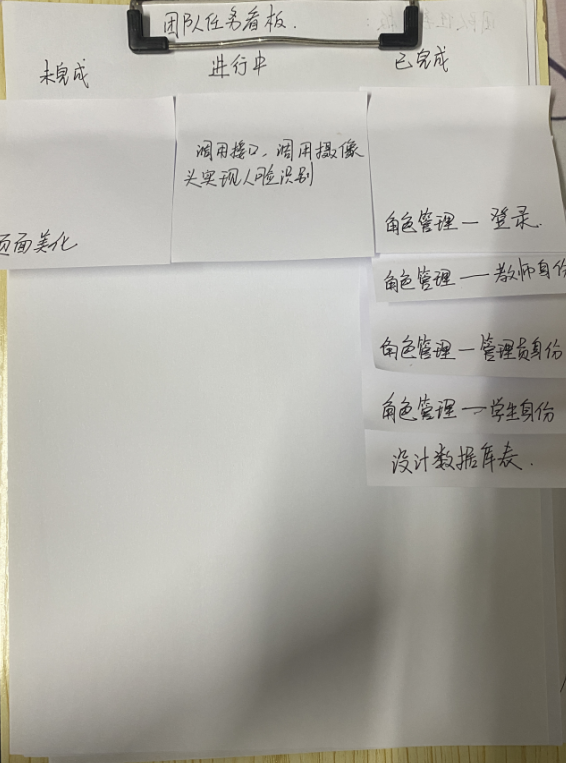 团队任务看板.
未完成
进行中
已完成
页面美化
调用接口、调用摄像
头实现人脸识别
角色管理—登录.
角色管理—教师身份
角色管理—管理员身份
角色管理—学生身份
设计数据库表.